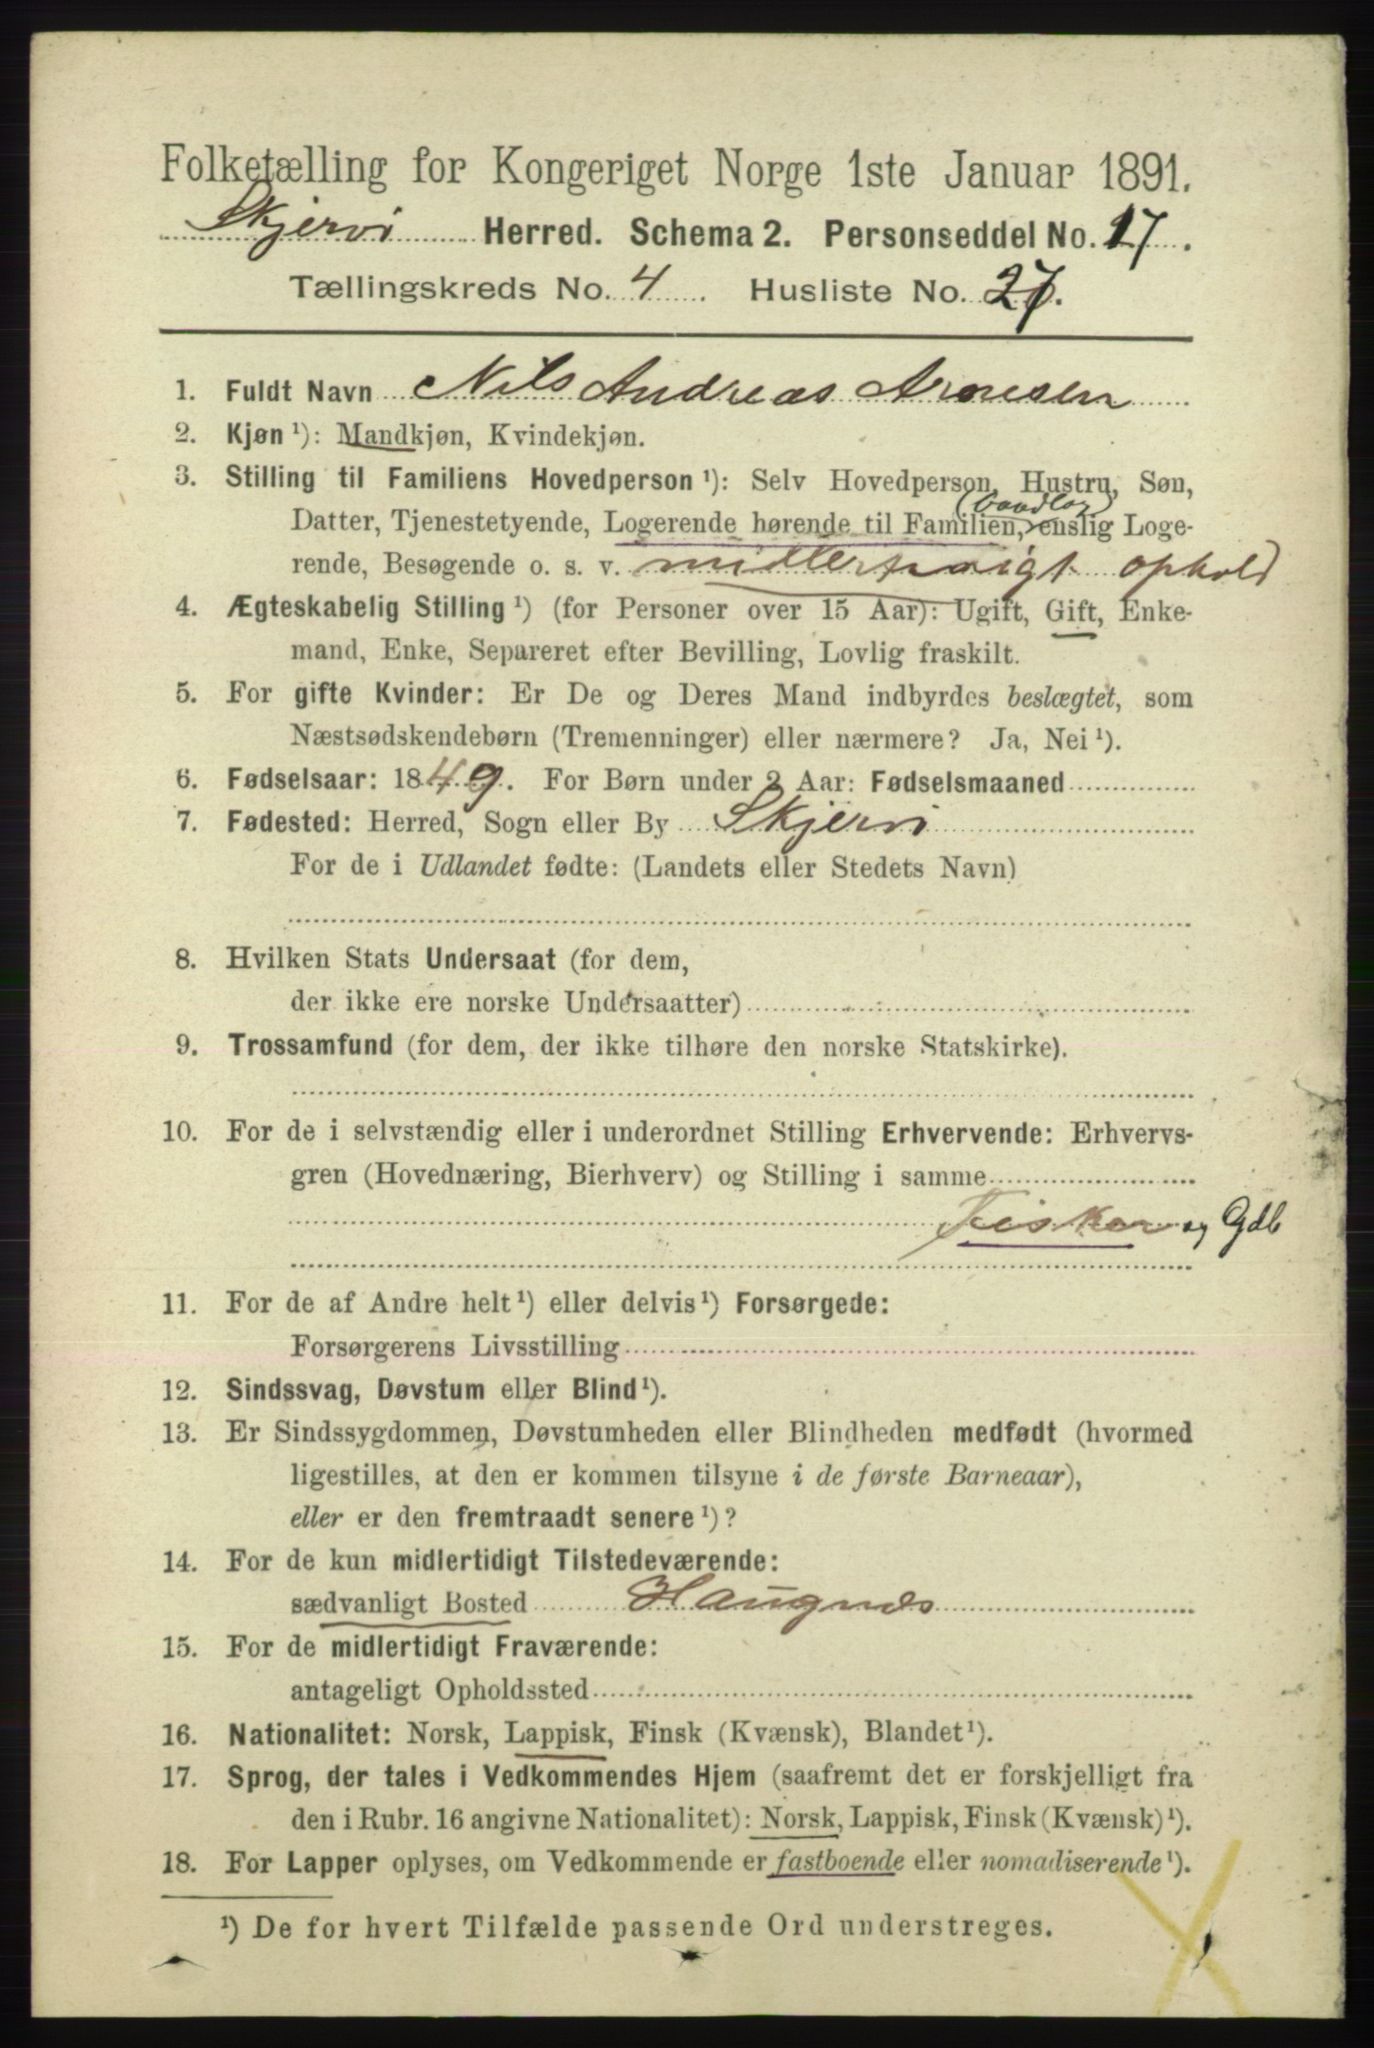 Folketælling for Kongeriget Norge 1ste Januar 1891.
Skjervø Herred. Schema 2. Personseddel No. 17.
Tællingskreds No. 4 Husliste No. 27.
1. Fuldt Navn Nils Andreas Arnesen
2. Kjøn ¹): Mandkjøn, Kvindekjøn.
3. Stilling til Familiens Hovedperson ¹): Selv Hovedperson, Hustru, Søn,
Datter, Tjenestetyende, Logerende hørende til Familien, enslig Loge-
rende, Besøgende o. s. v. midlertidigt ophold
4. Ægteskabelig Stilling ¹) (for Personer over 15 Aar): Ugift, Gift, Enke-
mand, Enke, Separeret efter Bevilling, Lovlig fraskilt.
5. For gifte Kvinder: Er De og Deres Mand indbyrdes beslægtet, som
Næstsødskendebørn (Tremenninger) eller nærmere? Ja, Nei ¹).
6. Fødselsaar: 1849. For Børn under 2 Aar: Fødselsmaaned
7. Fødested: Herred, Sogn eller By Skjervø
For de i Udlandet fødte: (Landets eller Stedets Navn)
8. Hvilken Stats Undersaat (for dem,
der ikke ere norske Undersaatter)
9. Trossamfund (for dem, der ikke tilhøre den norske Statskirke).
10. For de i selvstændig eller i underordnet Stilling Erhvervende: Erhvervs-
gren (Hovednæring, Bierhverv) og Stilling i samme
Fisker og Gdb
11. For de af Andre helt ¹) eller delvis ¹) Forsørgede:
Forsørgerens Livsstilling
12. Sindssvag, Døvstum eller Blind ¹).
13. Er Sindssygdommen, Døvstumheden eller Blindheden medfødt (hvormed
ligestilles, at den er kommen tilsyne i de første Barneaar),
eller er den fremtraadt senere ¹)?
14. For de kun midlertidigt Tilstedeværende:
sædvanligt Bosted Haugnæs
15. For de midlertidigt Fraværende:
antageligt Opholdssted
16. Nationalitet: Norsk, Lappisk, Finsk (Kvænsk), Blandet ¹).
17. Sprog, der tales i Vedkommendes Hjem (saafremt det er forskjelligt fra
den i Rubr. 16 angivne Nationalitet): Norsk, Lappisk, Finsk (Kvænsk) ¹).
18. For Lapper oplyses, om Vedkommende er fastboende eller nomadiserende ¹).
¹) De for hvert Tilfælde passende Ord understreges.